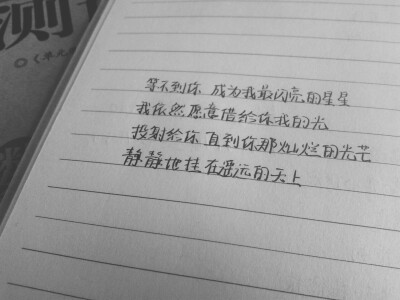 测
《单元
等不到你 成为我最闪亮的星星
我依然愿意借给你我的光
投射给你 直到你那灿烂的光芒
静静地挂在遥远的天上